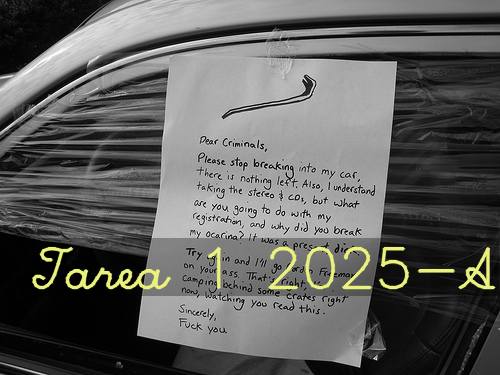 Dear Criminals,
Please stop breaking into my car,
there is nothing left. Also, I understand
taking the stereo & CDs, but what
are you going to do with my
registration, and why did you break
my ocarina? It was a present dick.
Try again and I'll go Gordon Freeman
on your ass. That's right,
camping behind some crates right
now, watching you read this.
Sincerely,
Fuck you
Tarea 1 2025-A